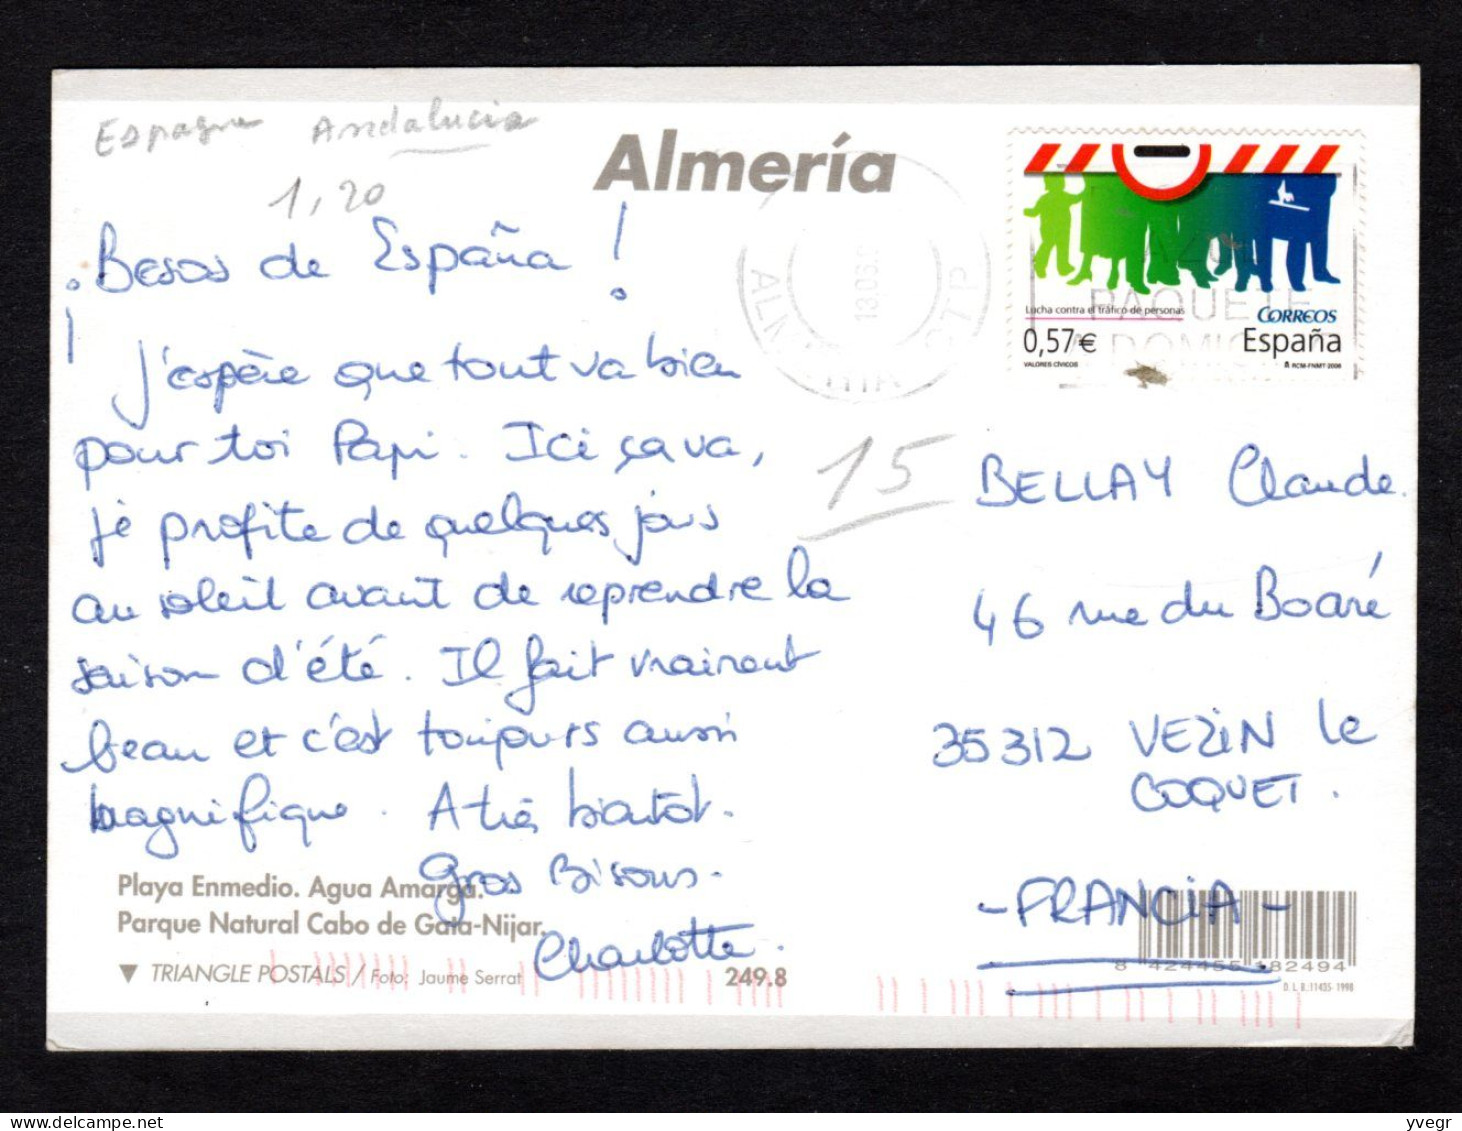 Espagne Andalucia
1,20
Almería
¡Besos de España!
J'espère que tout va bien
pour toi Papi. Ici ça va,
je profite de quelques jours
au soleil avant de reprendre la
saison d'été. Il fait vraiment
beau et c'est toujours aussi
magnifique. A très bientôt.
Gros Bisous.
Charlotte.
Playa Enmedio. Agua Amarga.
Parque Natural Cabo de Gata-Nijar.
▼ TRIANGLE POSTALS / Foto: Jaume Serrat
249.8
Lucha contra el tráfico de personas
CORREOS
0,57€ España
VALORES CÍVICOS RCM-FNMT-2008
13.06
PAQUETE
15
BELLAY Claude.
46 rue du Boaré
35312 VEZIN le
COQUET.
- FRANCIA -
8 424455 182494
D. L. B.: 11435-1998
yvegr